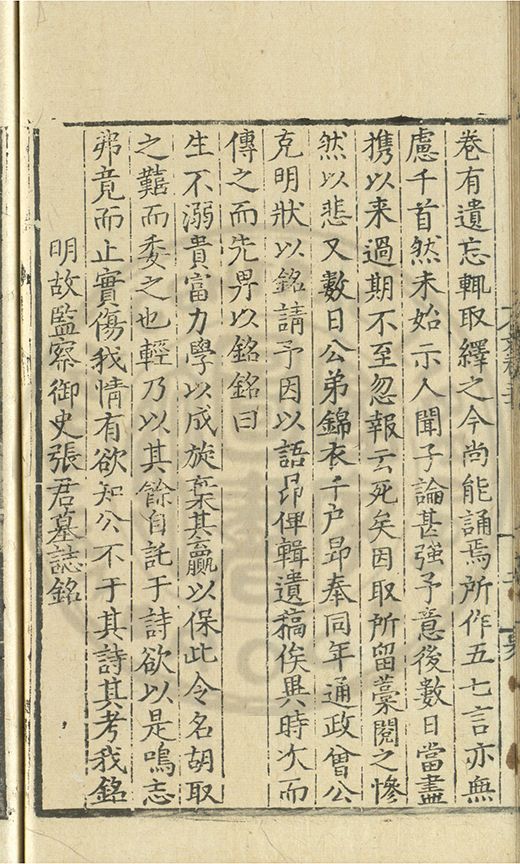 卷有遺忘輒取繹之今尚能誦焉所作五七言亦無
慮千首然未始示人聞予論甚強予意後數日當盡
携以来過期不至忽報云死矣因取所留藁閱之慘
然以悲又數日公弟錦衣千户昂奉同年通政曾公
克明狀以銘請予因以語昂俾輯遺稿俟異時次而
傳之而先畀以銘銘曰
生不溺貴富力學以成旋棄其贏以保此令名胡取
之難而委之也輕乃以其餘自託于詩欲以是鳴志
弗竟而止實傷我情有欲知公不于其詩其考我銘
明故監察御史張君墓誌銘